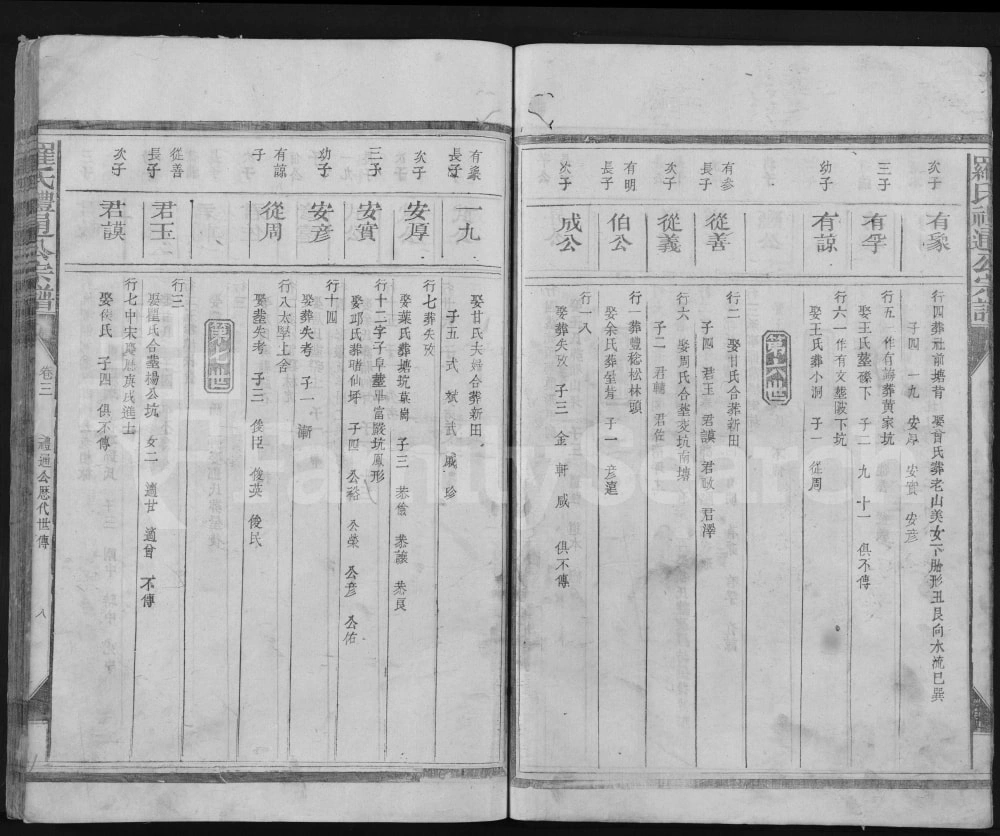 羅氏禮通公宗譜
次子
有象
行四葬社前塘背 娶曾氏葬老山美女下胎形丑艮向水流巳巽
子四 一九 安厚 安實 安彦
三子
有孚
行五一作有濤葬黄家坑
娶王氏墓磜下 子二 九 十一 俱不傳
幼子
有諒
行六一作有文墓陂下坑
娶王氏葬小洞 子一 從周
第六世
有參
長子
從善
行二 娶甘氏合葬新田
子四 君玉 君謨 君政 君澤
次子
從義
行六 娶周氏合墓炭坑南塘
子二 君輔 君佐
有明
長子
伯公
行一葬豐稔松林頭
娶余氏葬屋背 子一 彦遠
次子
成公
行一八
娶葬失攷 子三 金 軒 咸 俱不傳
有象
長子
一九
娶甘氏夫婦合葬新田
子五 式 斌 武 咸 珍
次子
安厚
行七葬失攷
娶葉氏葬塘坑葉崗 子三 恭儉 恭讓 恭良
三子
安實
行十二字子阜墓早富嚴坑鳳形
娶邱氏葬睹仙坪 子四 公裕 公榮 公彦 公佑
幼子
安彦
行十四
娶葬失考 子一 漸
有諒
子
從周
行八太學上舍
娶墓失考 子三 俊臣 俊英 俊民
第七世
從善
長子
君玉
行三
娶瞿氏合墓楊公坑 女二 適甘 適曾 不傳
次子
君謨
行七中宋慶歷庚戌進士
娶侯氏 子四 俱不傳
羅氏禮通公宗譜
卷三
禮通公歷代世傳
八
FamilySearch